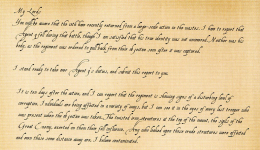 My Lord,
You will be aware that the cell have recently returned from a large-scale action in the wastes. I have to report that
Agent fell during that battle, though I am satisfied that his true identity was not uncovered. Neither was his
body, as the regiment was ordered to pull back from their position soon after it was captured.
I stand ready to take over Agent 's duties, and submit this report to you.
It is ten days after the action, and I can report that the regiment is showing signs of a disturbing level of
corruption. Individuals are being affected in a variety of ways, but I can see it in the eyes of every last trooper who
was present when the position was taken. The twisted iron structures at the top of the mount, the sigils of the
Great Enemy, daubed on them their fell influence. Any who looked upon these crude structures were affected
and even those some distance away are, I believe contaminated.